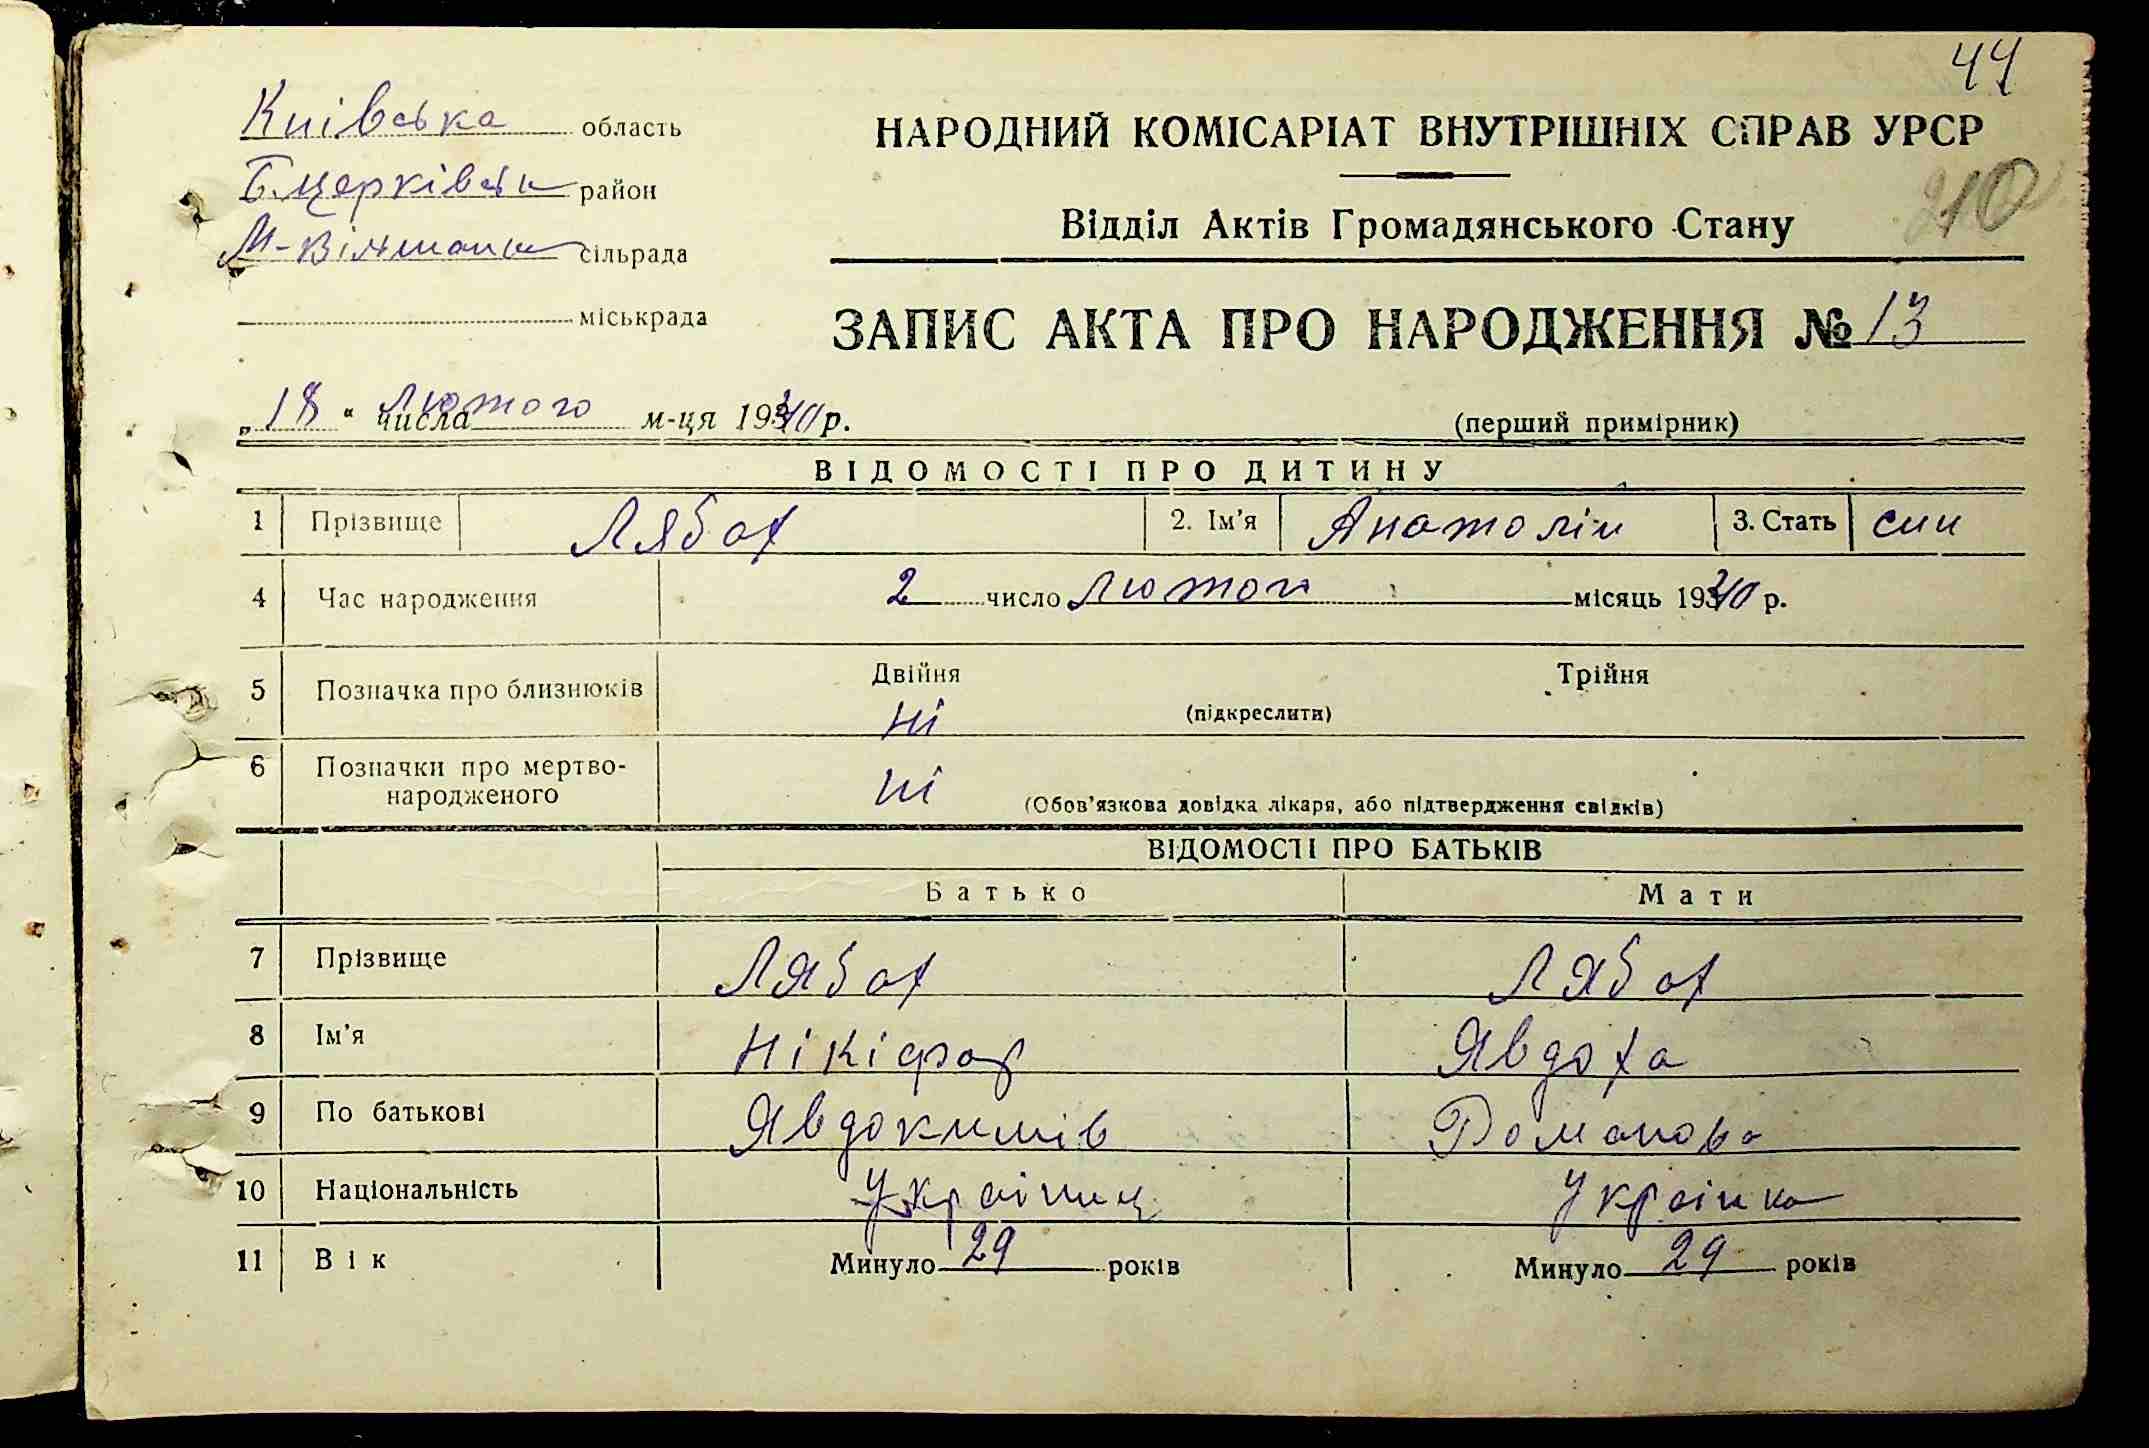 44
Київська область
Б.церківськ район
М-Вільшань сільрада
міськрада
НАРОДНИЙ КОМІСАРІАТ ВНУТРІШНІХ СПРАВ УРСР
Відділ Актів Громадянського Стану
ЗАПИС АКТА ПРО НАРОДЖЕННЯ № 13
„18“ числа лютого м-ця 1940 р.
(перший примірник)
ВІДОМОСТІ ПРО ДИТИНУ
1 Прізвище Лябах 2. Ім'я Анатолій 3. Стать син
4 Час народження 2 число лютого місяць 1940 р.
5 Позначка про близнюків Двійня Трійня
ні (підкреслити)
6 Позначки про мертво-
народженого ні (Обов'язкова довідка лікаря, або підтвердження свідків)
ВІДОМОСТІ ПРО БАТЬКІВ
Батько Мати
7 Прізвище Лябах Лябах
8 Ім'я Нікіфор Явдоха
9 По батькові Явдокимів Романова
10 Національність Українец Українка
11 Вік Минуло 29 років Минуло 29 років